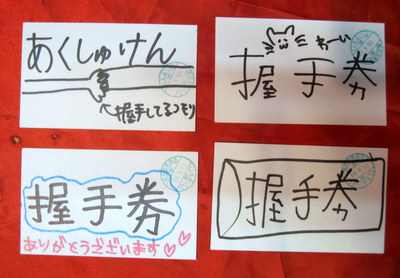 あくしゅけん
↖握手してるつもり
わーい
握手券
握手券
ありがとうございます♡♡
握手券